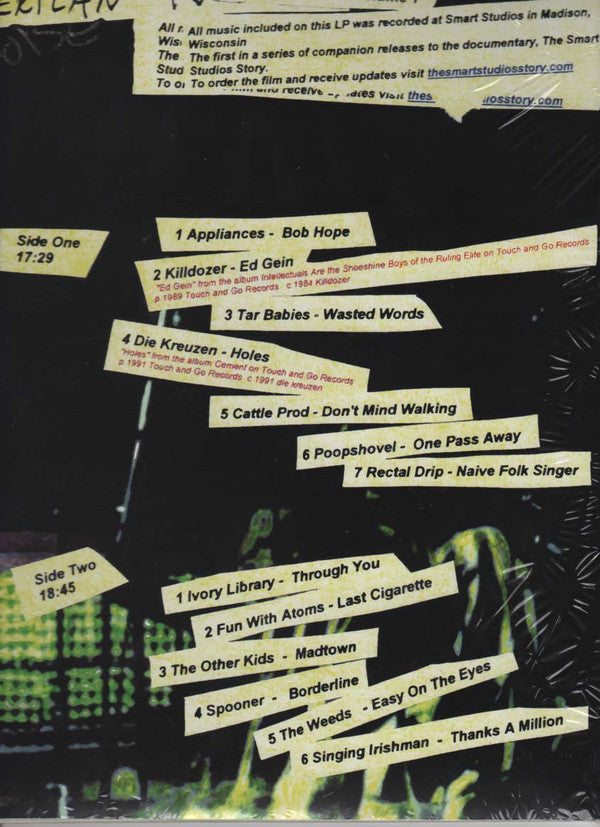 All r. All music included on this LP was recorded at Smart Studios in Madison,
Wis Wisconsin
The The first in a series of companion releases to the documentary, The Smart
Stud Studios Story.
To oı To order the film and receive updates visit thesmartstudiosstory.com
and receive updates visit thes iosstory.com
Side One
17:29
1 Appliances - Bob Hope
2 Killdozer - Ed Gein
"Ed Gein" from the album Intellectuals Are the Shoeshine Boys of the Ruling Elite on Touch and Go Records
p 1989 Touch and Go Records c 1984 Killdozer
3 Tar Babies - Wasted Words
4 Die Kreuzen - Holes
"Holes" from the album Cement on Touch and Go Records
p 1991 Touch and Go Records c 1991 die kreuzen
5 Cattle Prod - Don't Mind Walking
6 Poopshovel - One Pass Away
7 Rectal Drip - Naive Folk Singer
Side Two
18:45
1 Ivory Library - Through You
2 Fun With Atoms - Last Cigarette
3 The Other Kids - Madtown
4 Spooner - Borderline
5 The Weeds - Easy On The Eyes
6 Singing Irishman - Thanks A Million